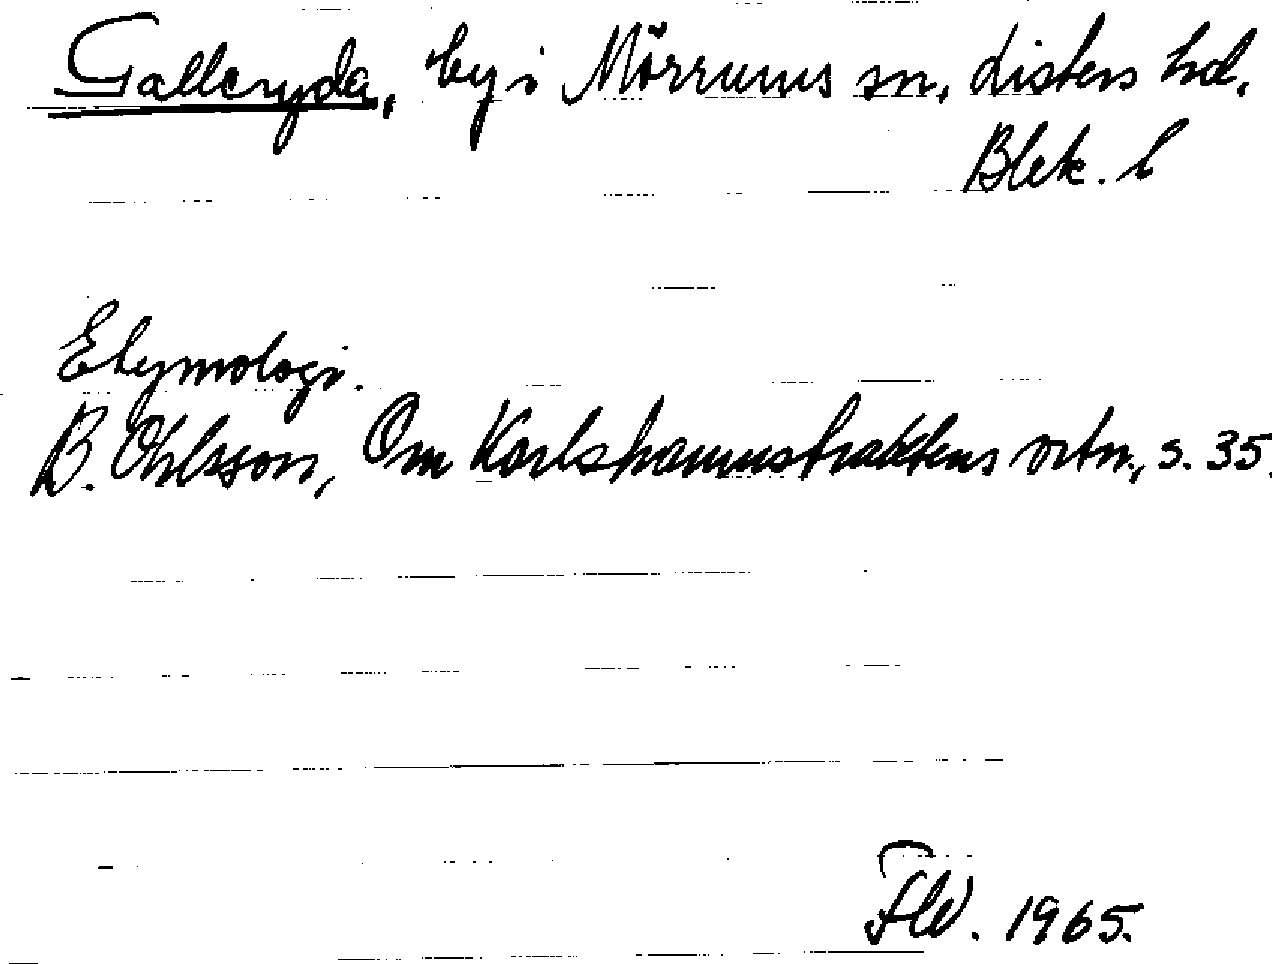 Galleryda, by i Mörrums sn, Listers hd.
Blek. l
Etymologi.
B. Ohlsson, Om Karlshamnstraktens ortn., s. 35.
FW. 1965.